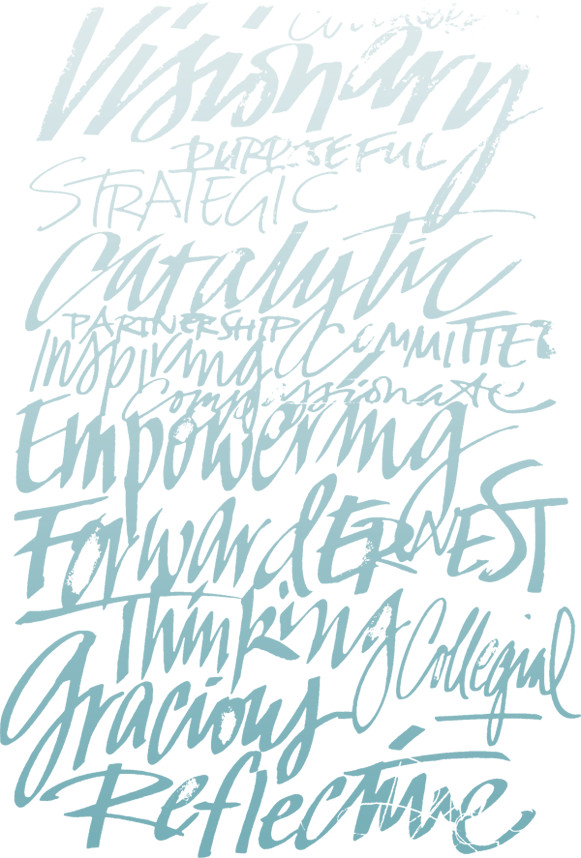 Visionary
PURPOSEFUL
STRATEGIC
Catalytic
PARTNERSHIP
Inspiring COMMITTED
Compassionate
Empowering
Forward ERNEST
Thinking Collegial
Gracious
Reflective